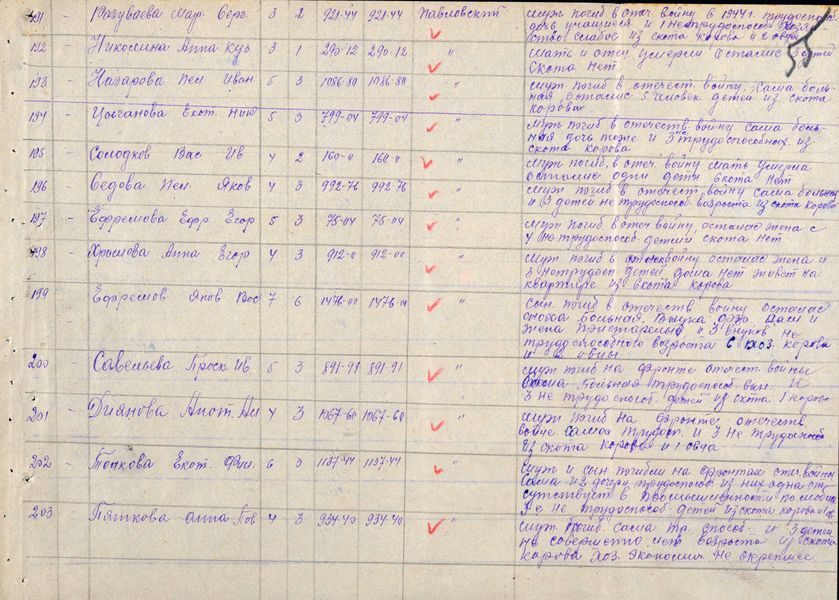 191 - Разуваева Мар. Серг. 3 2 921-44 921-44 Павловский муж погиб в отеч. войну в 1944 г. трудоспос.
дочь учащаяся и 1 нетрудоспособ. Хозяй
ство слабое из скота корова и 2 овцы
192 - Николина Анна Куз. 3 1 290-12 290-12 " Мать и отец умерли остались детей
Скота нет
193 - Назарова Пел. Иван. 5 3 1086-80 1086-80 " муж погиб в отечест. войну, Сама боль-
ная остались 5 человек детей из скота
корова
194 - Цыганова Екат. Ник 5 3 799-04 799-04 " муж погиб в отечеств. войну Сама боль-
ная дочь тоже и 3 трудоспособных из
скота корова
195 - Солодков Вас Ив 4 2 160-0 160-0 " муж погиб, в отеч. войну мать умерла
остались одни дети скота нет
196 - Седова Пел. Яков 4 3 992-76 992-76 " муж погиб в отечест. войну сама больна
и 3 детей не трудоспособ. возроста из скота корова
197 - Ефремова Ефр Егор 5 3 75-04 75-04 " муж погиб в отеч войну, осталас жена с
4 не трудоспос. детьми скота нет
198 - Анна Егор 4 3 912-0 912-00 " муж погиб в войну осталас жена и
5 нетрудосп детей, дома нет живет на
квартире из скота корова
199 - Ефремов Яков Вас 7 6 1476-00 1476-00 " Сын погиб в отечеств войну осталас
сноха больная, Вас и
жена и 3 внуков не
трудоспособного возроста с хоз. корова
и 2 овцы
200 - Савельева Проск. Ив 5 3 891-91 891-91 муж погиб на фронте отечест. войны
Сама больная трудоспособ. и
3 не трудоспособ. детей из скота 1 корова
201 - Диянова Ан 4 3 1067-60 1067-60 " муж погиб на фронте отечеств.
войне. Сама трудосп. и 3 не трудоспособ
из скота корова и 1 овца
202 - Екат. Фил. 6 3 1137-44 1137-44 " муж и сын погибли на фронтах отеч. войны
Сама и 2 дочери трудоспособ из них одна от
сутствует в промышленности по
не трудоспособ детей из скота корова
203 - Пяткова Анна Пав 4 3 934-40 934-40 " муж погиб Сама тр. способ. и 3 детей
не совершенно лет. возроста из скота
корова хоз. не окрепшее
55